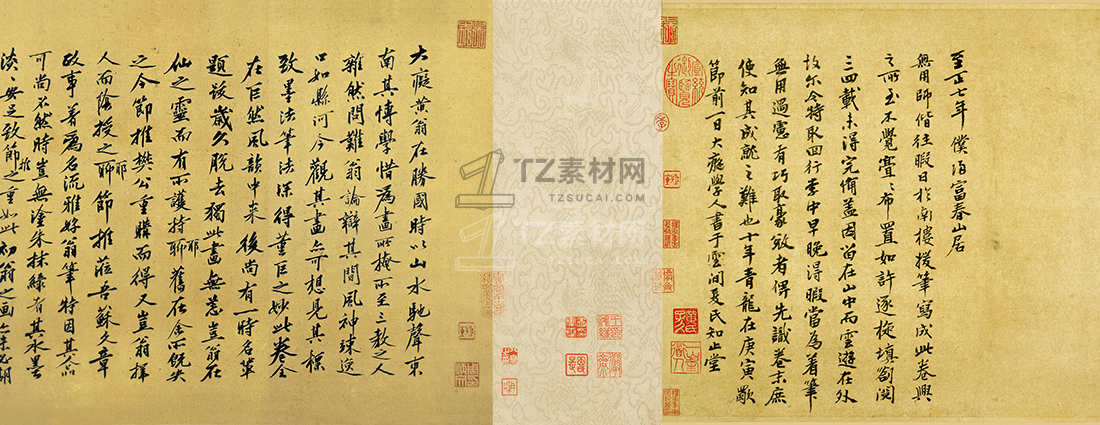 至正七年僕歸富春山居
無用師偕往暇日於南樓援筆寫成此卷興
之所至不覺亹亹布置如許逐旋填劄閱
三四載未得完備蓋因留在山中而雲遊在外
故尔今特取回行李中早晚得暇當為着筆
無用過慮有巧取豪敓者俾先識卷末庶
使知其成就之難也十年青龍在庚寅歜
節前一日大癡學人書于雲間夏氏知止堂
大癡黃翁在勝國時以山水馳聲東
南其博學惜為畫所掩所至三教之人
雜然問難翁論辯其間風神竦逸
口如懸河今觀其畫亦可想見其標
致墨法筆法深得董巨之妙此卷全
在巨然風韻中来後尚有一時名輩
題跋歲久脫去獨此畫無恙豈翁在
仙之靈而有所護持耶舊在余所既失
之今節推樊公重購而得又豈翁擇
人而陰授之耶節推蒞吾蘇文章
政事著為名流雅好翁筆特因其人品
可尚不然時豈無塗朱抹綠者其水墨
淡淡安足致節推之重如此初翁之画亦未必期
TZ素材网
TZSUCAI.COM